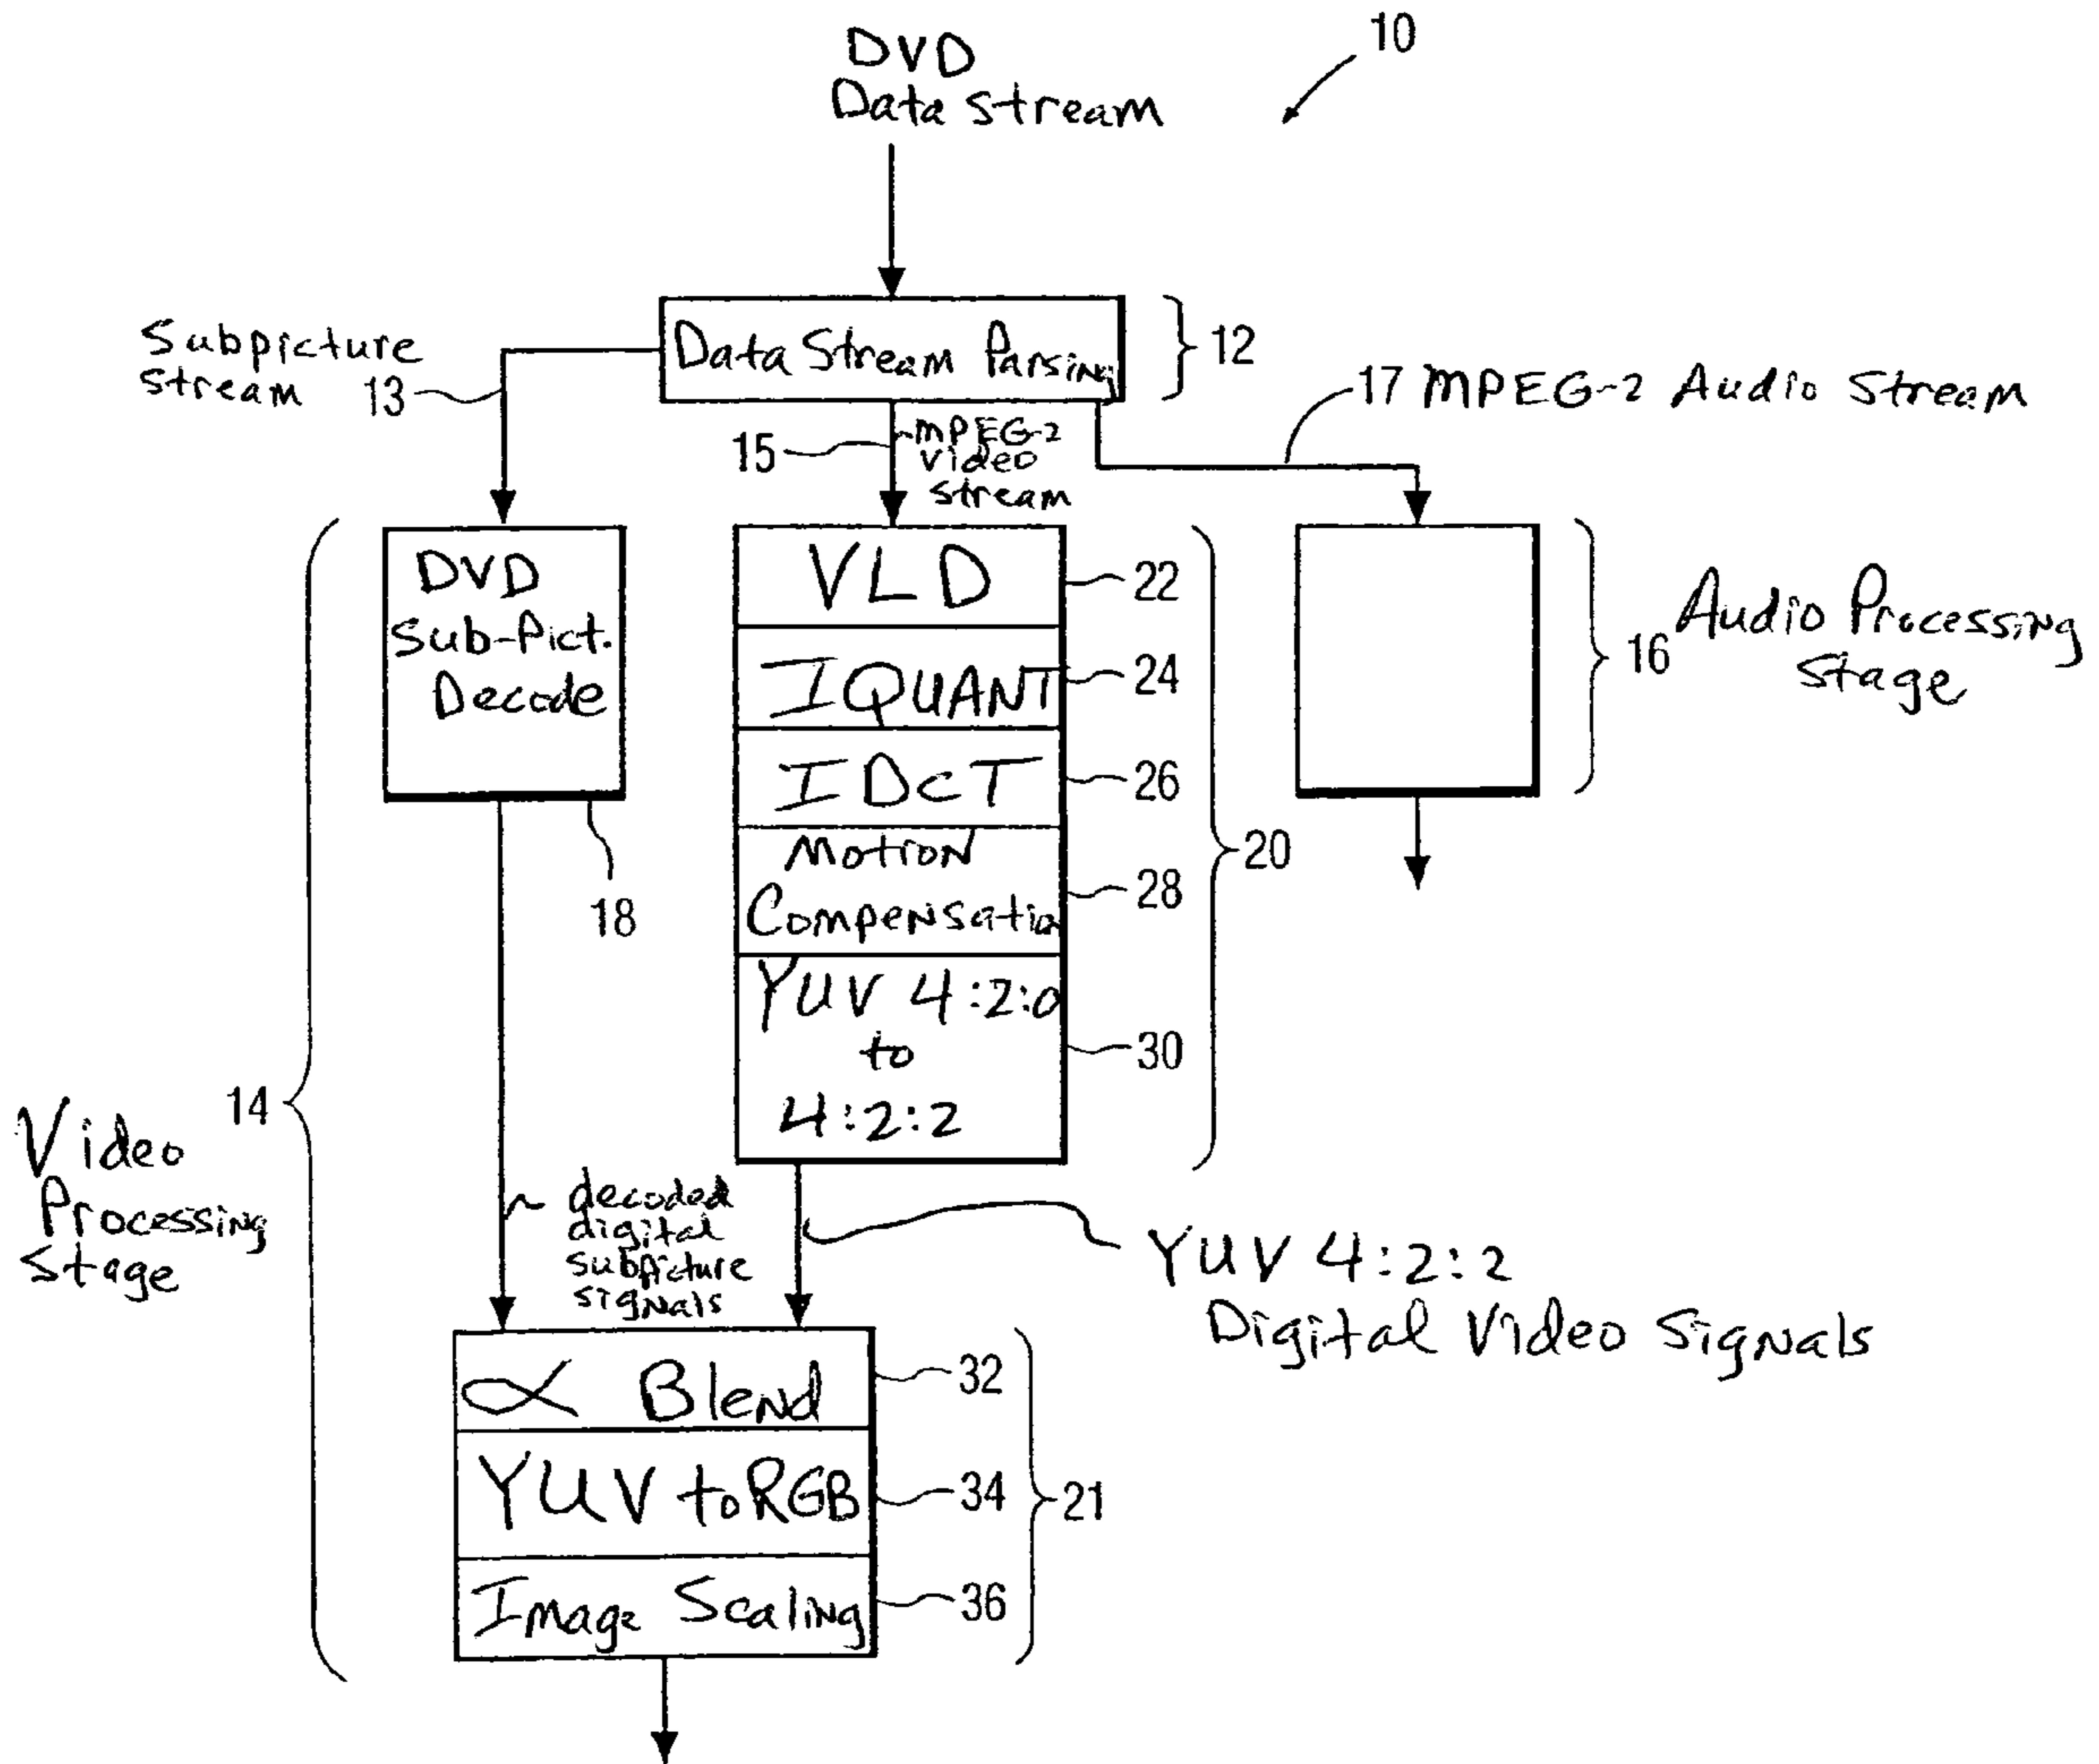 DVD
Data Stream
10
Data Stream Parsing
12
Subpicture
stream 13
15
MPEG-2
video
stream
17 MPEG-2 Audio Stream
DVD
Sub-Pict.
Decode
18
VLD
22
IQUANT
24
IDCT
26
Motion
Compensation
28
YUV 4:2:0
to
4:2:2
30
20
16
Audio Processing
Stage
14
Video
Processing
Stage
decoded
digital
subpicture
signals
YUV 4:2:2
Digital Video Signals
α Blend
32
YUV to RGB
34
Image Scaling
36
21